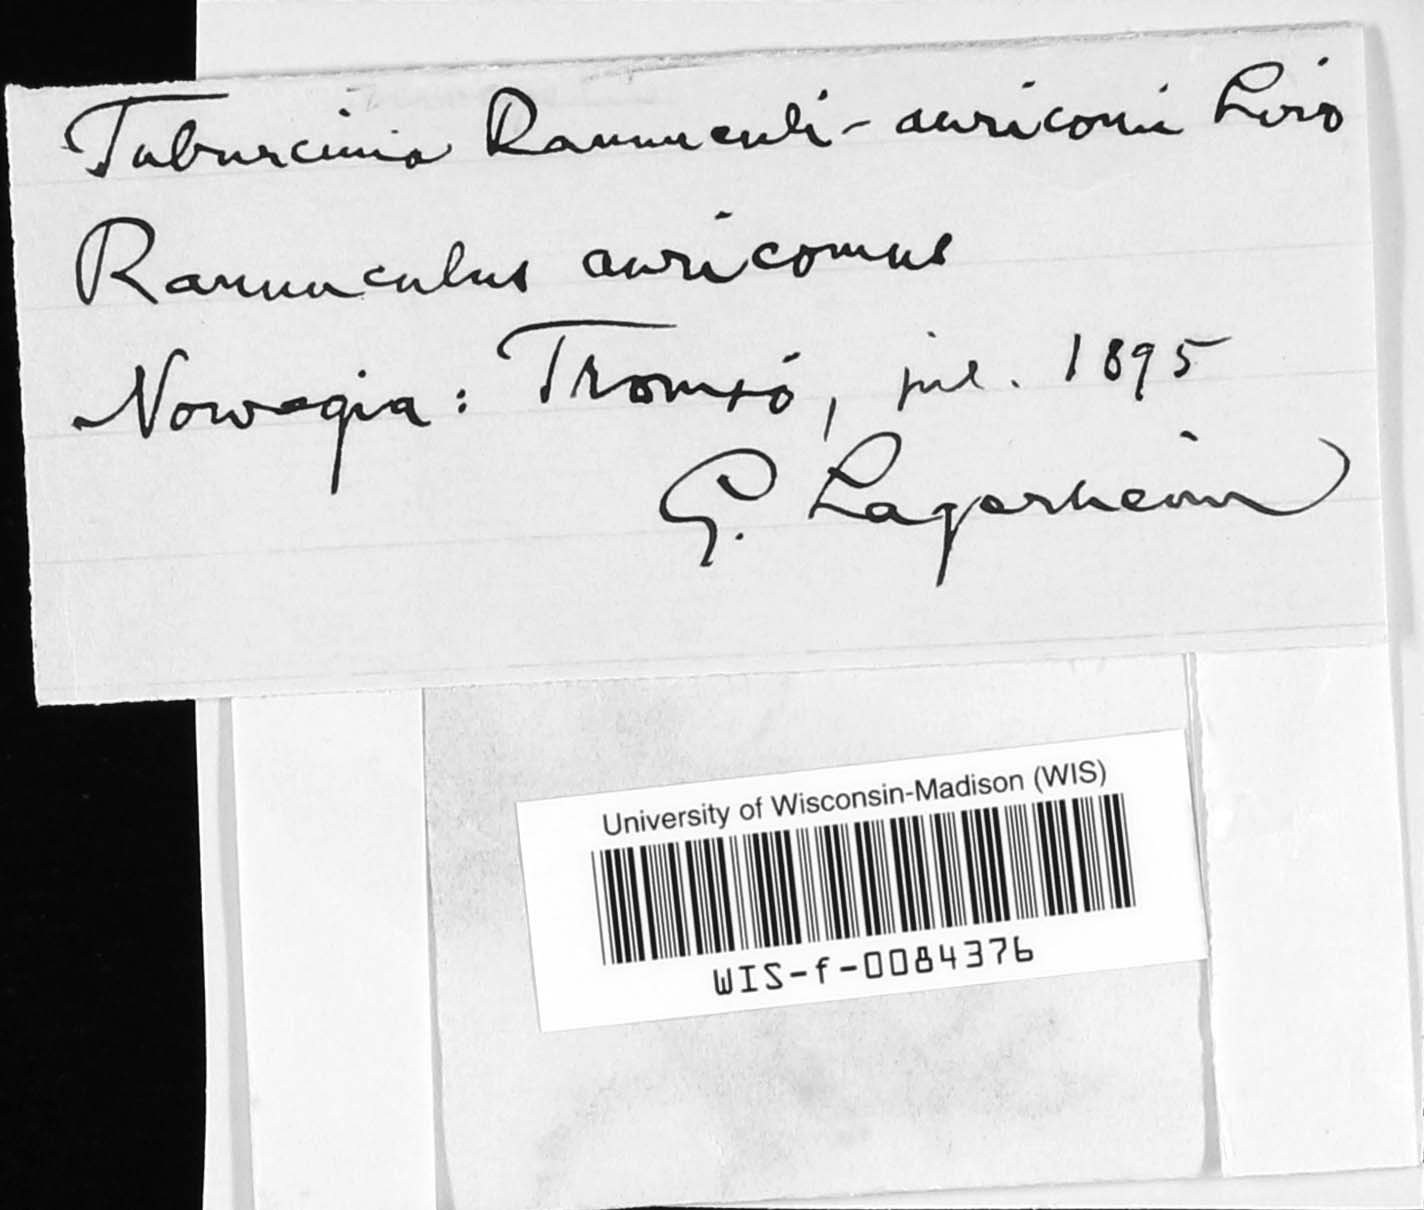 Tuburcinia Ranunculi-auricomi Liro
Ranunculus auricomus
Norwegia: Tromsö, jul. 1895
G. Lagerheim
University of Wisconsin-Madison (WIS)
WIS-f-0084376